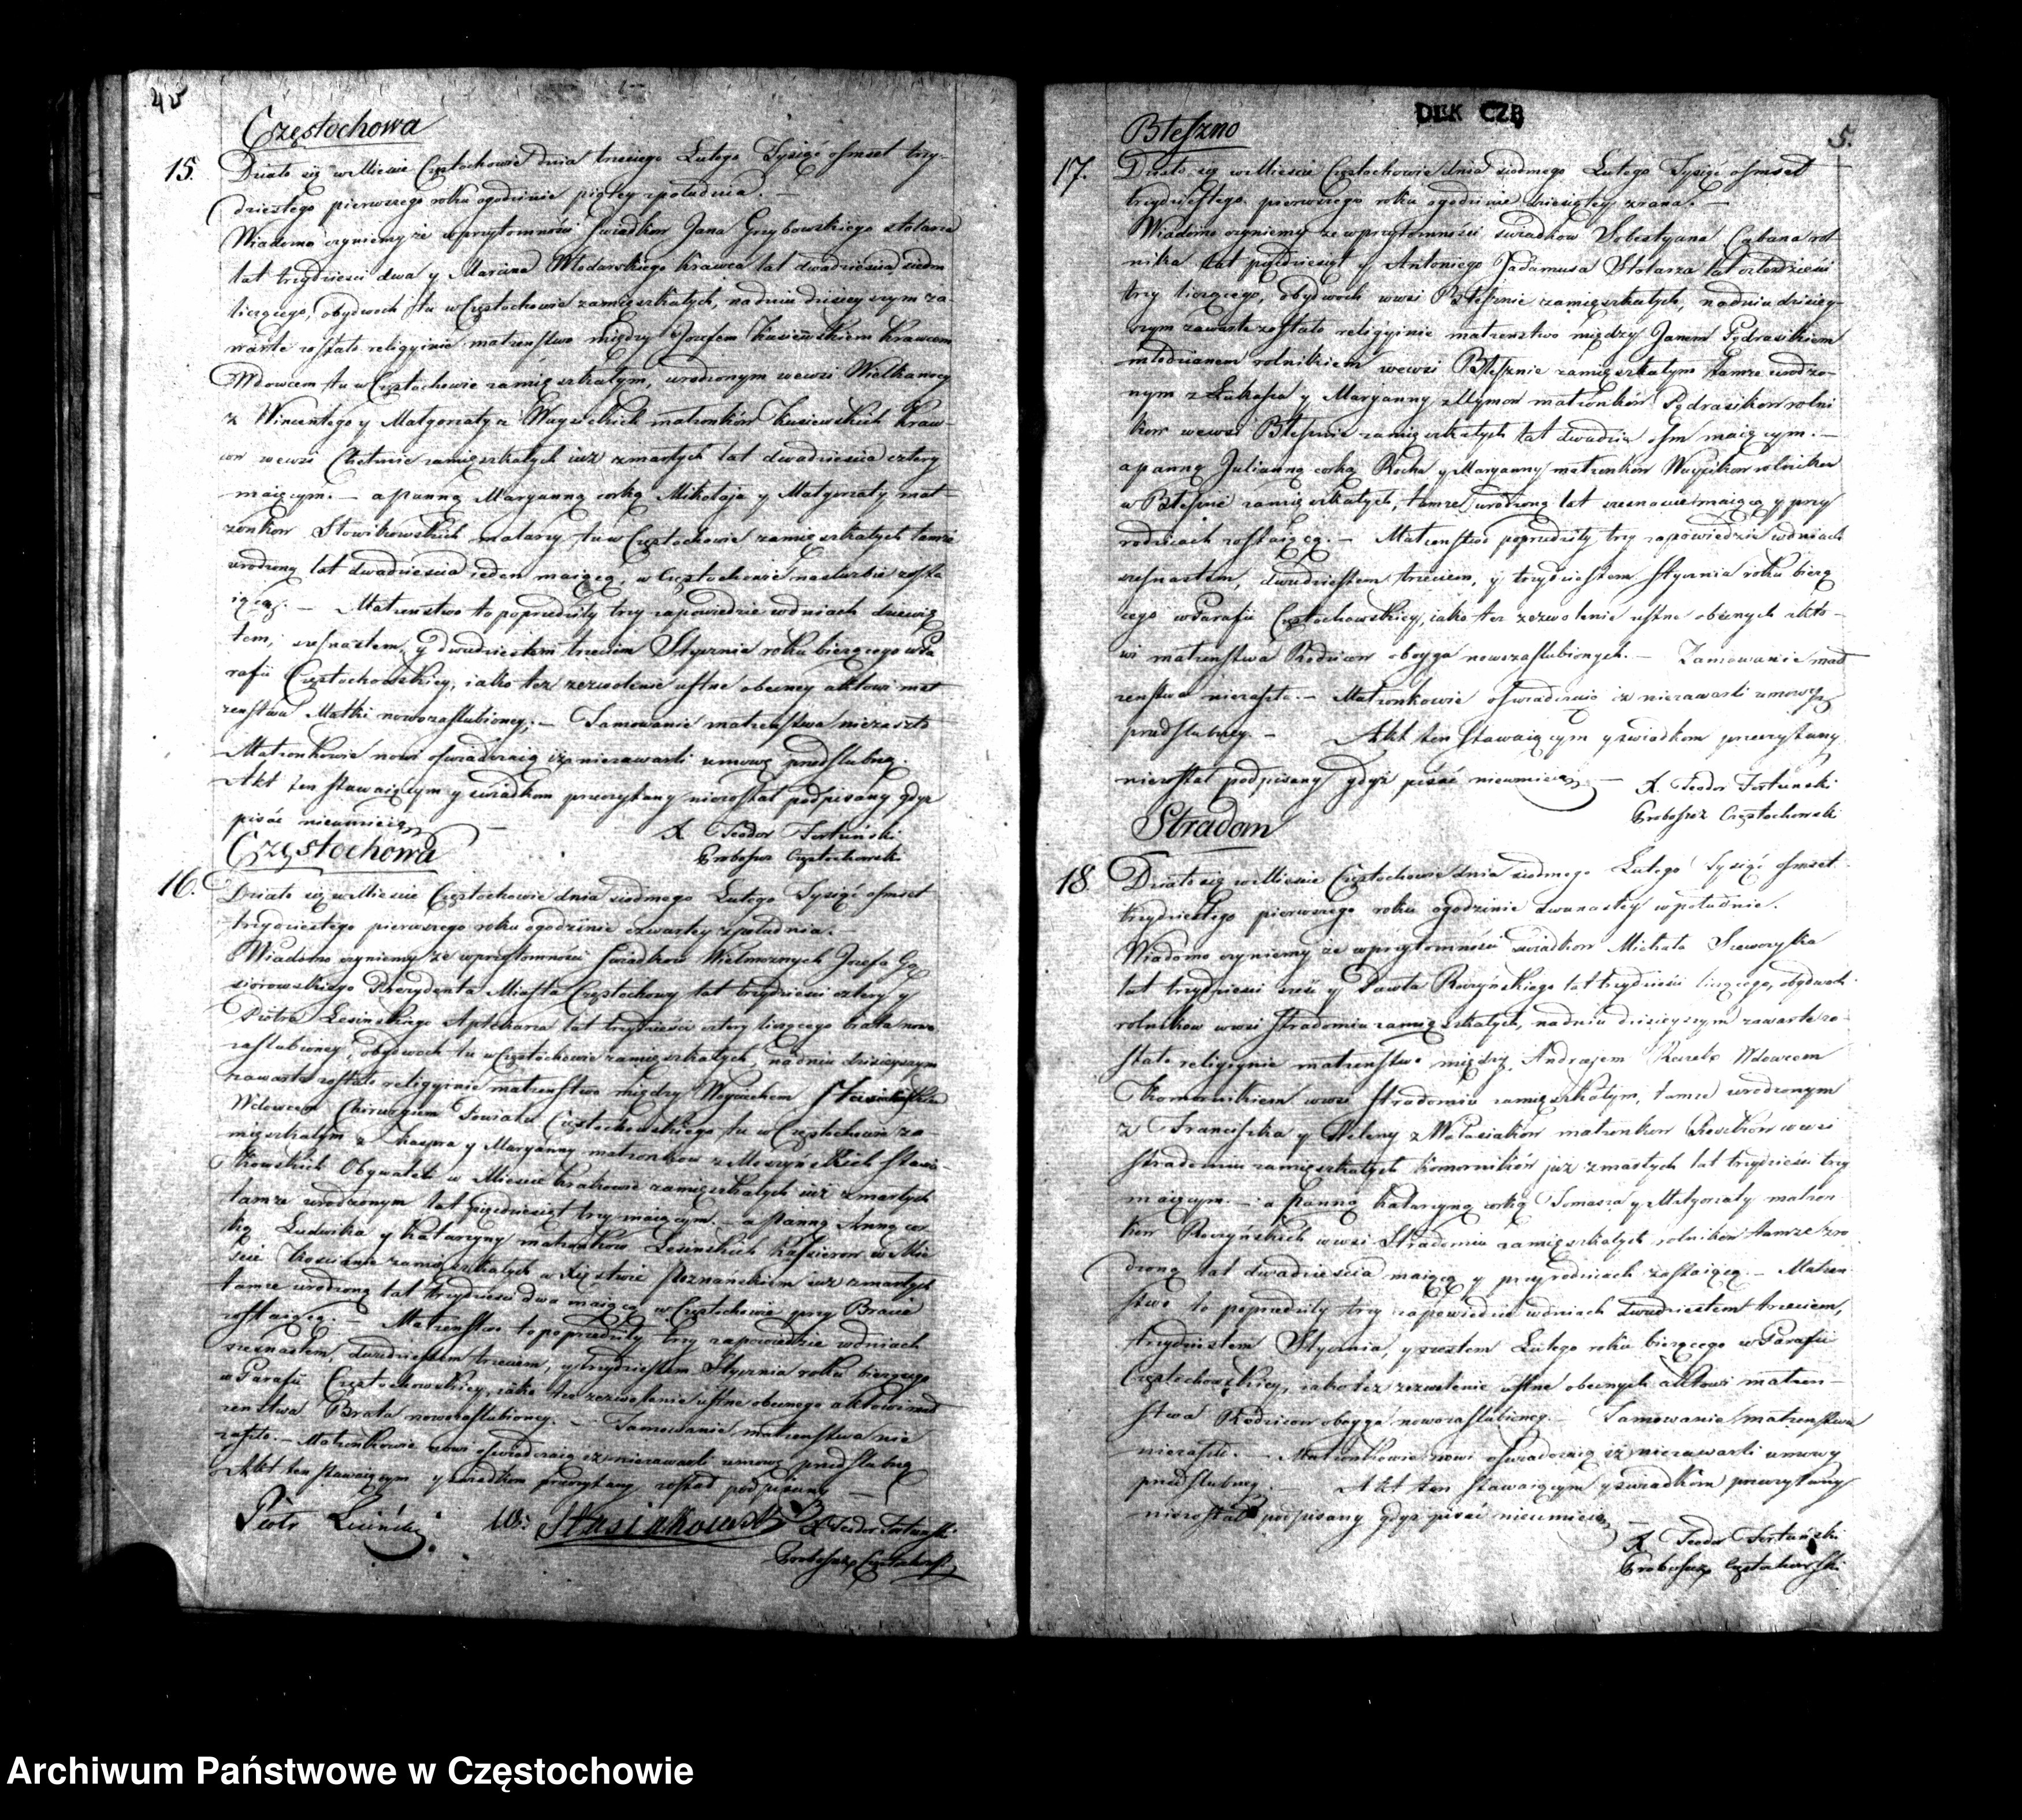 Częstochowa
15. Działo się w Mieście Częstochowie dnia trzeciego Lutego Tysiąć ośmset trzy-
dziestego pierwszego roku ogodzinie piątey zpołudnia. —
Wiadomo czyniemy że wprzytomności Świadków Jana Grzybowskiego stolarza
lat trzydzieści dwa y Marcina Włodarskiego Krawca lat dwadzieścia siedm
liczącego, obydwoch tu w Częstochowie zamięszkałych, nadniu dzisieyszym za-
warte zostało religijnie małżeństwo między Jozefem Krawcem
Wdowcem tu w Częstochowie zamięszkałym, urodzonym wewsi Wielkanocy
z Wincentego y Małgorzaty z małżonków Kraw-
cow wewsi zamięszkałych iuż zmarłych lat dwadzieścia cztery
maiącym. — a panną Maryanną corką Mikołaja y Małgorzaty mał-
żonkow Słowikowskich malarzy tu w Częstochowie zamięszkałych tamże
urodzoną lat dwadzieścia ieden maiącą, w Częstochowie nasłuzbie zosta
iącą. — Małżeństwo to poprzedziły trzy zapowiedzie wdniach dziewią
tem, szesnastem, y dwudziestem trzeciem Stycznia roku bieżącego wPa
rafii Częstochowskiey, iako też zezwolenie ustne obecney aktowi mał
żeństwa Matki nowozaślubioney. — Tamowanie małżeństwa niezaszło
Małżonkowie nowi oświadczaią iż niezawarli umowę przedślubną.
Akt ten stawaiącym y świadkom przeczytany niezostał podpisany gdyż
pisać nieumieią —
X Teodor Fortuński
Proboszcz Częstochowski
Częstochowa
16. Działo się w Mieście Częstochowie dnia siodmego Lutego Tysiąć ośmset
trzydziestego pierwszego roku ogodzinie czwartey zpołudnia. —
Wiadomo czyniemy że wprzytomności Świadkow Wielmożnych Jozefa Gą
siorowskiego Prezydenta Miasta Częstochowy lat trzydzieści cztery y
Piotra Lesinskiego Aptekarza lat trzydzieści cztery liczącego brata nowo
zaślubioney, obydwoch tu w Częstochowie zamięszkałych, nadniu dzisieyszym
zawarte zostało religijnie małżeństwo między Woyciechem
Wdowcem Chirurgiem Powiatu Częstochowskiego tu w Częstochowie za-
mięszkałym z Kaspra y Maryanny małżonkow z Stasia-
kowskich Obywateli w Mieście Krakowie zamięszkałych iuż zmarłych
tamże urodzonym lat pięćdziesiąt trzy maiącym. — a panną Anną cor
ką Ludwika y Katarzyny małżonków Lesinskich Kassierow w Mie
ście Kościanie zamięszkałych w Xięstwie Poznańskiem iuż zmarłych
tamże urodzoną lat trzydzieści dwa maiącą w Częstochowie przy Bracie
zostaiącą. — Małżeństwo to poprzedziły trzy zapowiedzie wdniach
szesnastem, dwudziestem trzeciem, y trzydziestem Stycznia roku bieżącego
w Parafii Częstochowskiey, iako też zezwolenie ustne obecnego aktowi mał
żeństwa Brata nowozaślubioney. — Tamowanie małżeństwa nie
zaszło. — Małżonkowie nowi oświadczaią iż niezawarli umowę przedślubną
Akt ten stawaiącym y świadkom przeczytany został podpisany —
Piotr Lesiński W: Stasiakowski X Teodor Fortuński
Proboszcz Częstochowski
DEK CZĘ
5.
Błeszno
17. Działo się w Mieście Częstochowie dnia siodmego Lutego Tysiąć ośmset
trzydziestego pierwszego roku ogodzinie dziesiątey zrana. —
Wiadomo czyniemy że wprzytomności świadkow Sobestyana Cabana rol-
nika lat pięćdziesiąt y Antoniego Jadamusa Stolarza lat czterdzieści
trzy liczącego, obydwoch wewsi Błesznie zamięszkałych, nadniu dzisiey-
szym zawarte zostało religijnie małżeństwo między Janem Pędrasikiem
młodzianem rolnikiem wewsi Błesznie zamięszkałym tamże urodzo-
nym z Łukasza y Maryanny z małżonków Pędrasikow rolni
kow wewsi Błesznie zamięszkałych lat dwadzia ośm maiącym. —
a panną Julianną corką Rocha y Maryanny małżonkow Woycikow rolnikow
w Błesznie zamięszkałych, tamże urodzoną lat szesnascie maiącą y przy
rodzicach zostaiącą. — Małżeństwo poprzedziły trzy zapowiedzie wdniach
szesnastem, dwudziestem trzeciem, y trzydziestem Stycznia roku bieżą
cego wParafii Częstochowskiey, iako też zezwolenie ustne obecnych akto-
wi małżeństwa Rodzicow oboyga nowozaślubionych. — Tamowanie mał
żeństwa niezaszło. — Małżonkowie oświadczaią iż niezawarli umowę
przedślubną. — Akt ten stawaiącym y świadkom przeczytany
niezostał podpisany gdyż pisać nieumieią —
X. Teodor Fortuński
Proboszcz Częstochowski
Stradom
18. Działo się w Mieście Częstochowie dnia siodmego Lutego Tysiąć ośmset
trzydziestego pierwszego roku ogodzinie dwunastey wpołudnie.
Wiadomo czyniemy że wprzytomności świadkow Michała Szewczyka
lat trzydzieści sześć y Pawła Roczyńskiego lat trzydzieści liczącego, obydwoch
rolnikow wewsi Stradomiu zamięszkałych, nadniu dzisieyszym zawarte zo-
stało religijnie małżeństwo między Andrzejem Wdowcem
Komornikiem wewsi Stradomiu zamięszkałym, tamże urodzonym
z Franciszka y Heleny z Walasiakow małżonkow wewsi
Stradomiu zamięszkałych komornikow już zmarłych lat trzydzieści trzy
maiącym. — a panną Katarzyną corką Tomasza y Małgorzaty małżon
kow Roczyńskich wewsi Stradomiu zamięszkałych rolnikow tamże zro
dzoną lat dwadzieścia maiącą y przy rodzicach zostaiącą. — Małżen
stwo to poprzedziły trzy zapowiedzie wdniach dwudziestem trzeciem,
trzydziestem Stycznia, y szostem Lutego roku bieżącego w Parafii
Częstochowskiey, iako też zezwolenie ustne obecnych aktowi małżen-
stwa Rodzicow oboyga nowozaślubioney. — Tamowanie małżeństwa
niezaszło. — Małżonkowie nowi oświadczaią iż niezawarli umowy
przedślubny. — Akt ten stawaiącym y świadkom przeczytany
niezostał podpisany gdyż pisać nieumieią
X Teodor Fortuński
Proboszcz Częstochowski
Archiwum Państwowe w Częstochowie